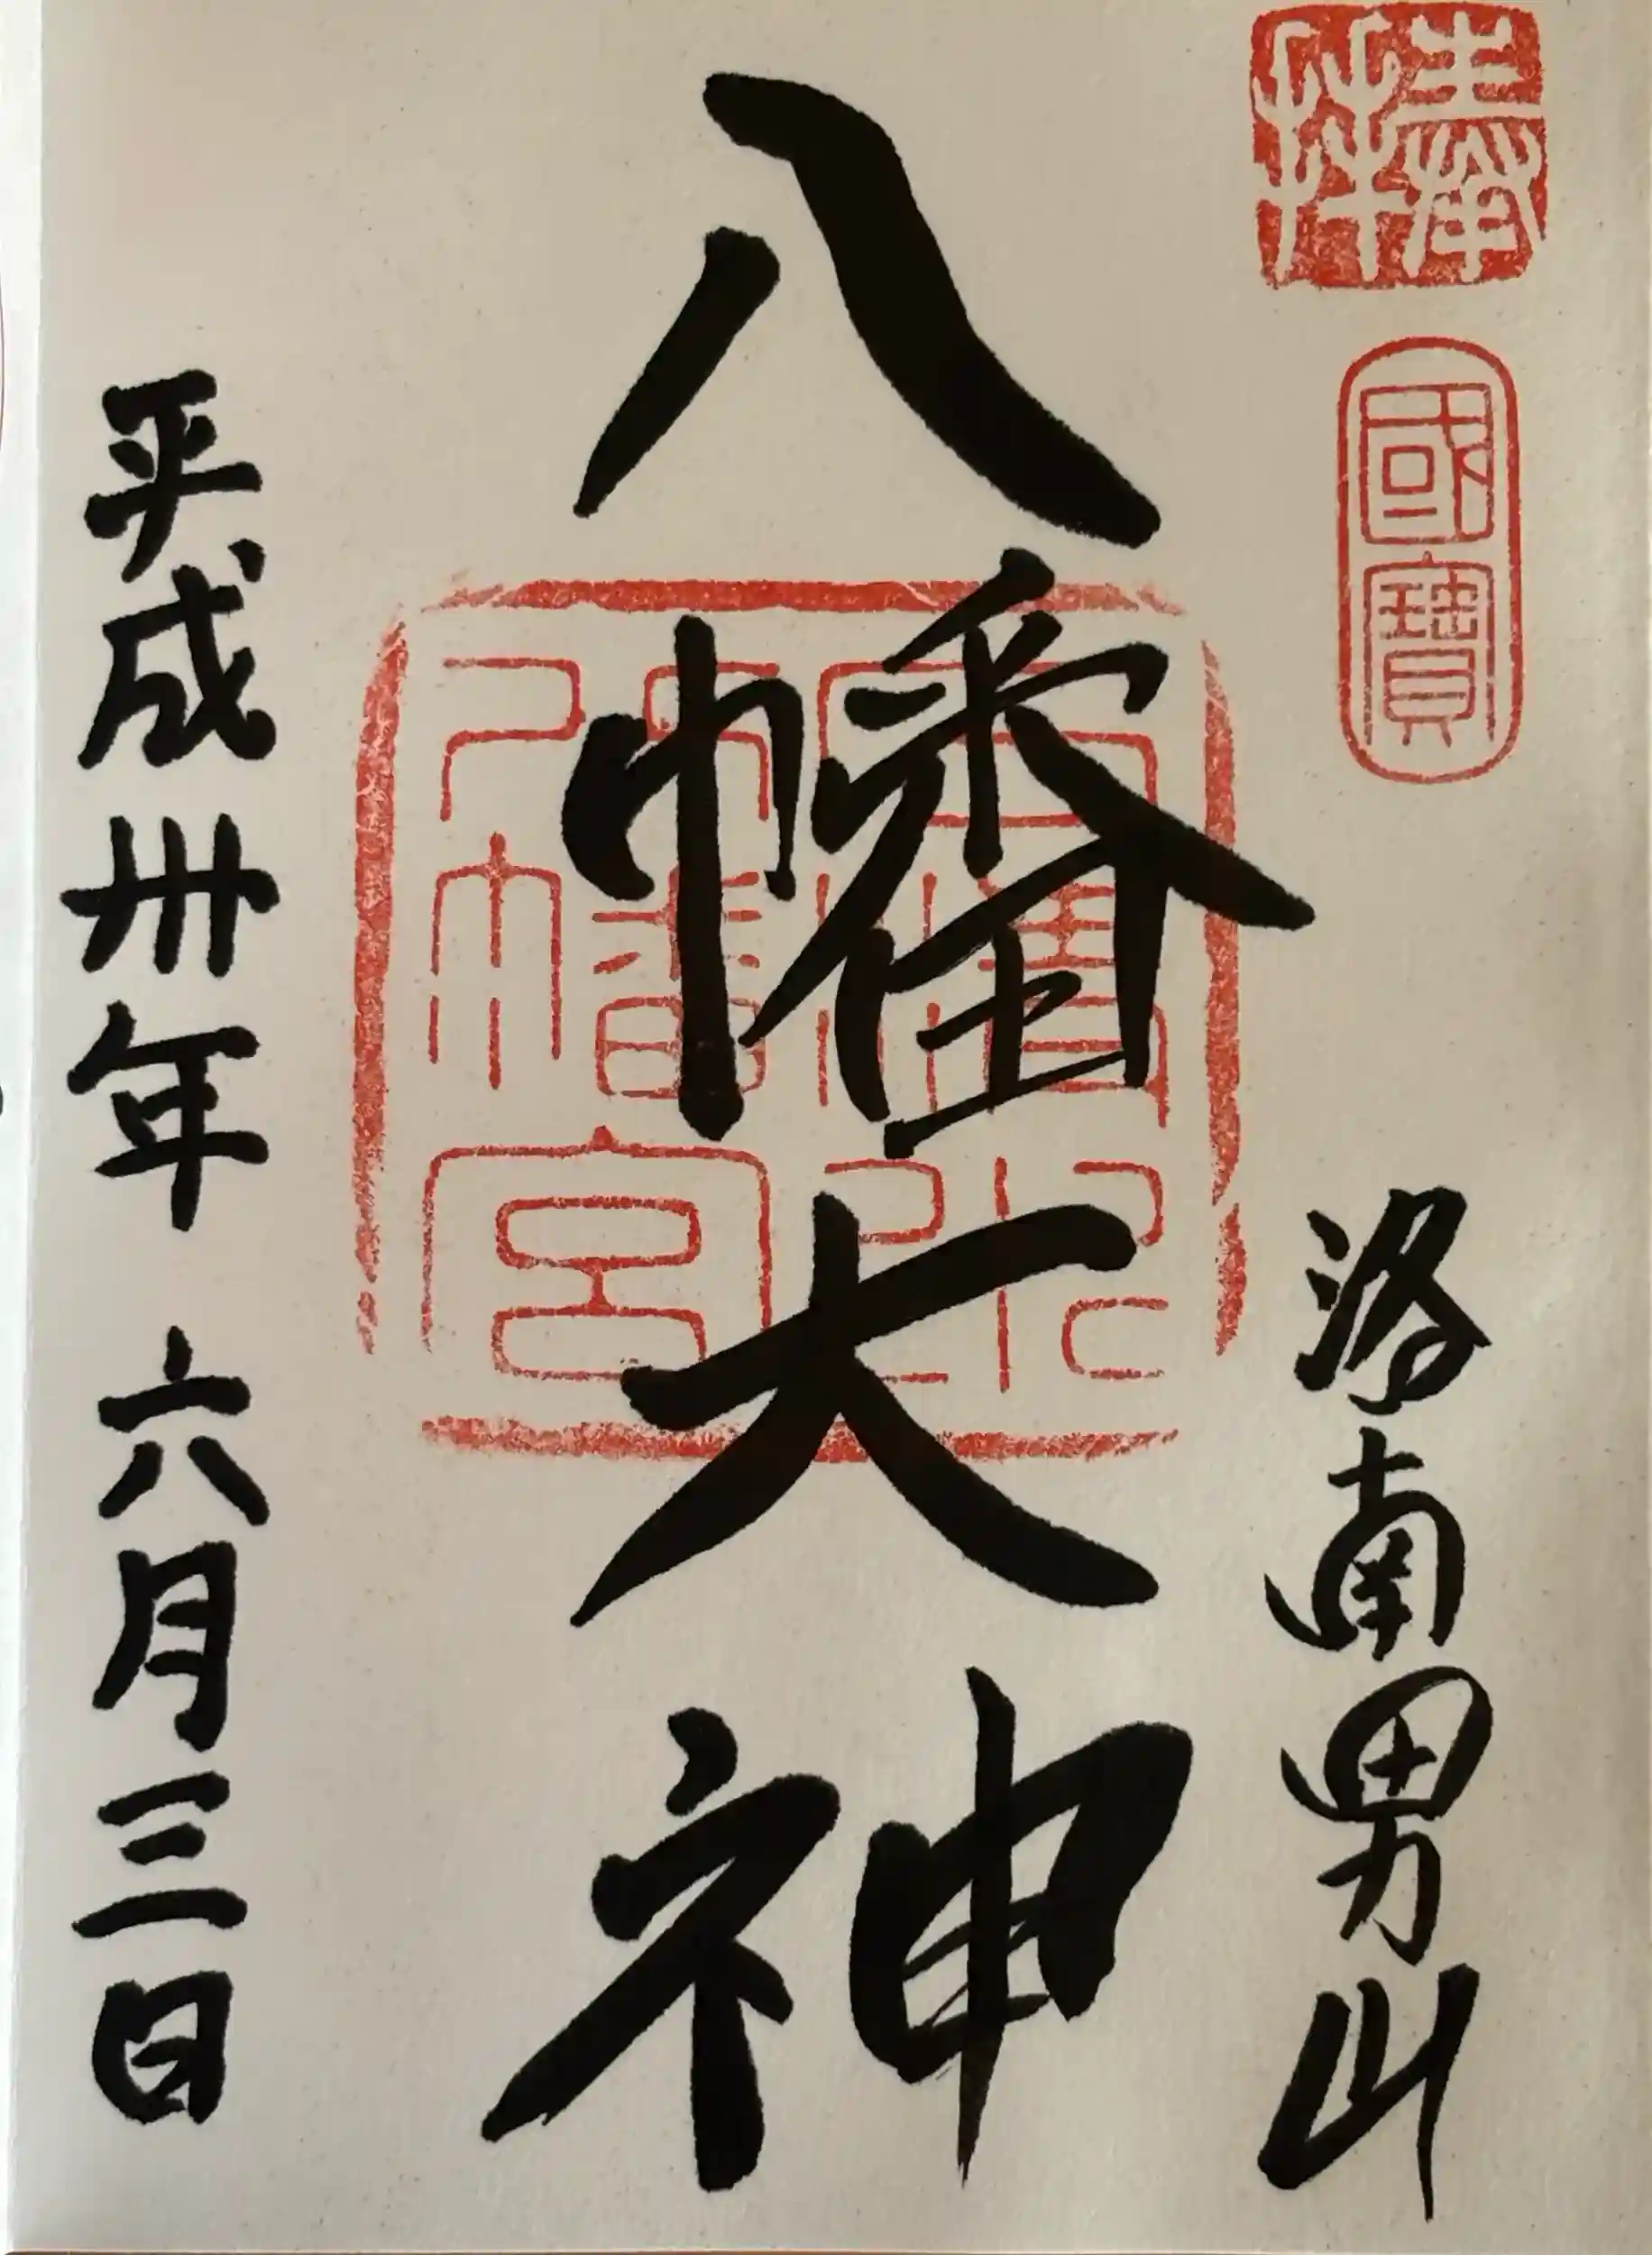 奉拝
國寳
洛南男山
八幡大神
石清水
八幡宮
平成卅年 六月三日